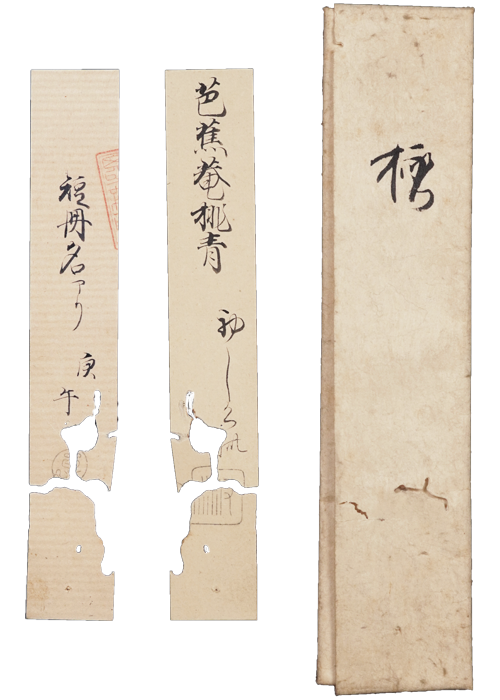 極
芭蕉菴桃青
初しくれ
短冊名アリ
庚午